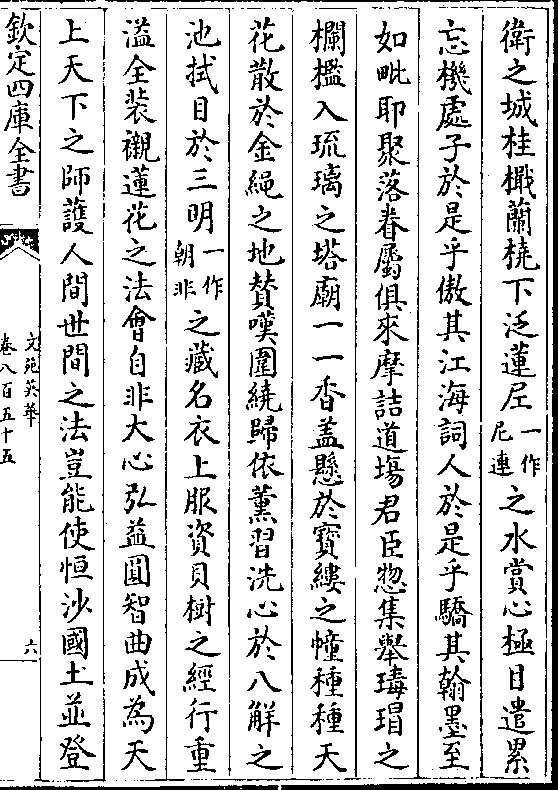 衛之城桂檝蘭橈下泛蓮𡰱一作尼連之水賞心極目遣累
忘機處子於是乎傲其江海詞人於是乎驕其翰墨至
如毗耶聚落眷屬俱來摩詰道場君臣惣集舉瑇瑁之
欄檻入琉璃之塔廟一一香盖懸於寶縷之幢種種天
花散於金繩之地賛嘆圍繞歸依薰習洗心於八解之
池拭目於三明一作朝非之藏名衣上服資貝樹之經行重
溢全裝襯蓮花之法會自非大心弘益圓智曲成為天
上天下之師䕶人間世間之法豈能使恒沙國土並登
欽定四庫全書
文苑英華
卷八百五十五
六